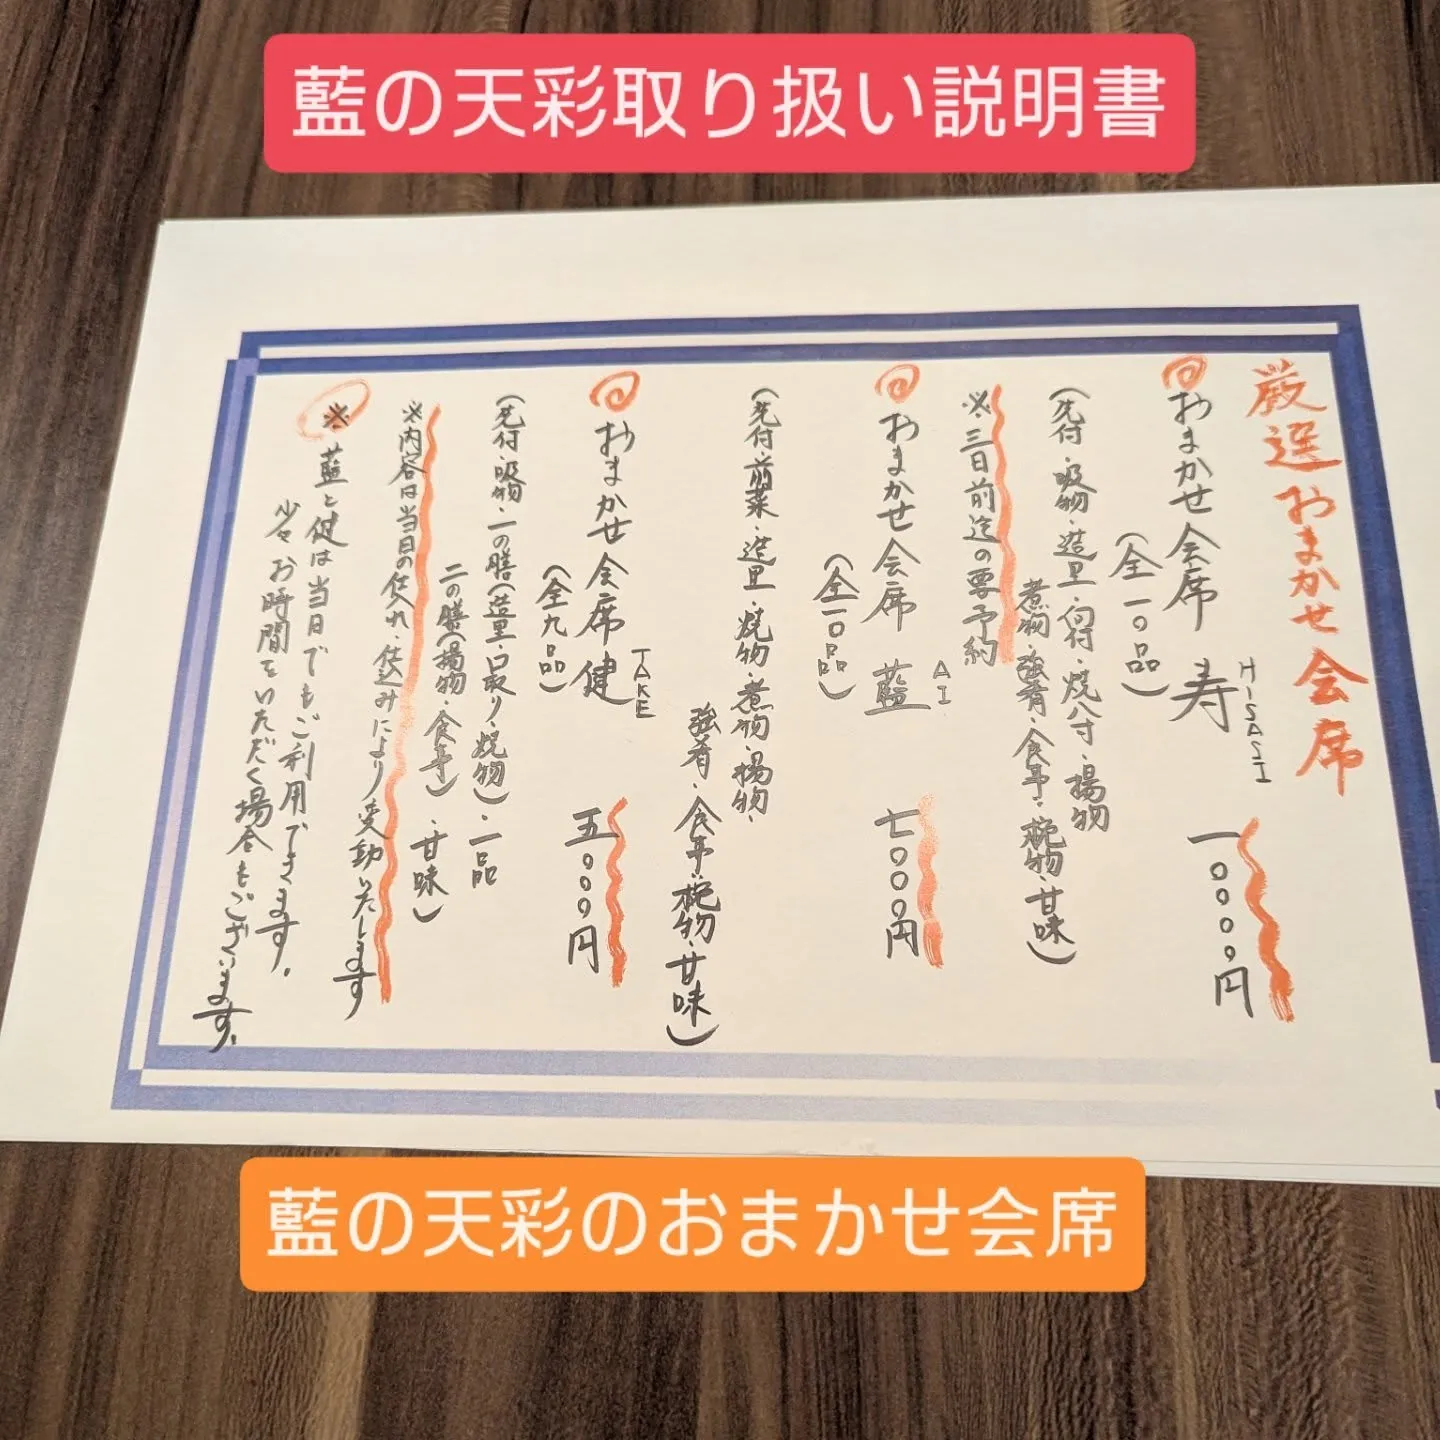 藍の天彩取り扱い説明書
厳選おまかせ会席
おまかせ会席 寿 一〇〇〇〇円
HISASI
(全一〇品)
(先付・吸物・造里・向付・焼八寸・揚物
煮物・強肴・食事・椀物・甘味)
※三日前迄の要予約
おまかせ会席 藍 七〇〇〇円
AI
(全一〇品)
(先付・前菜・造里・焼物・煮物・揚物・
強肴・食事・椀物・甘味)
おまかせ会席 健 五〇〇〇円
TAKE
(全九品)
(先付・吸物・一の膳(造里・口取り・焼物)・一品
二の膳(揚物・食事)・甘味)
※内容は当日の仕入れ・仕込みにより変動いたします
※藍と健は当日でもご利用できます。
少々お時間をいただく場合もございます。
藍の天彩のおまかせ会席